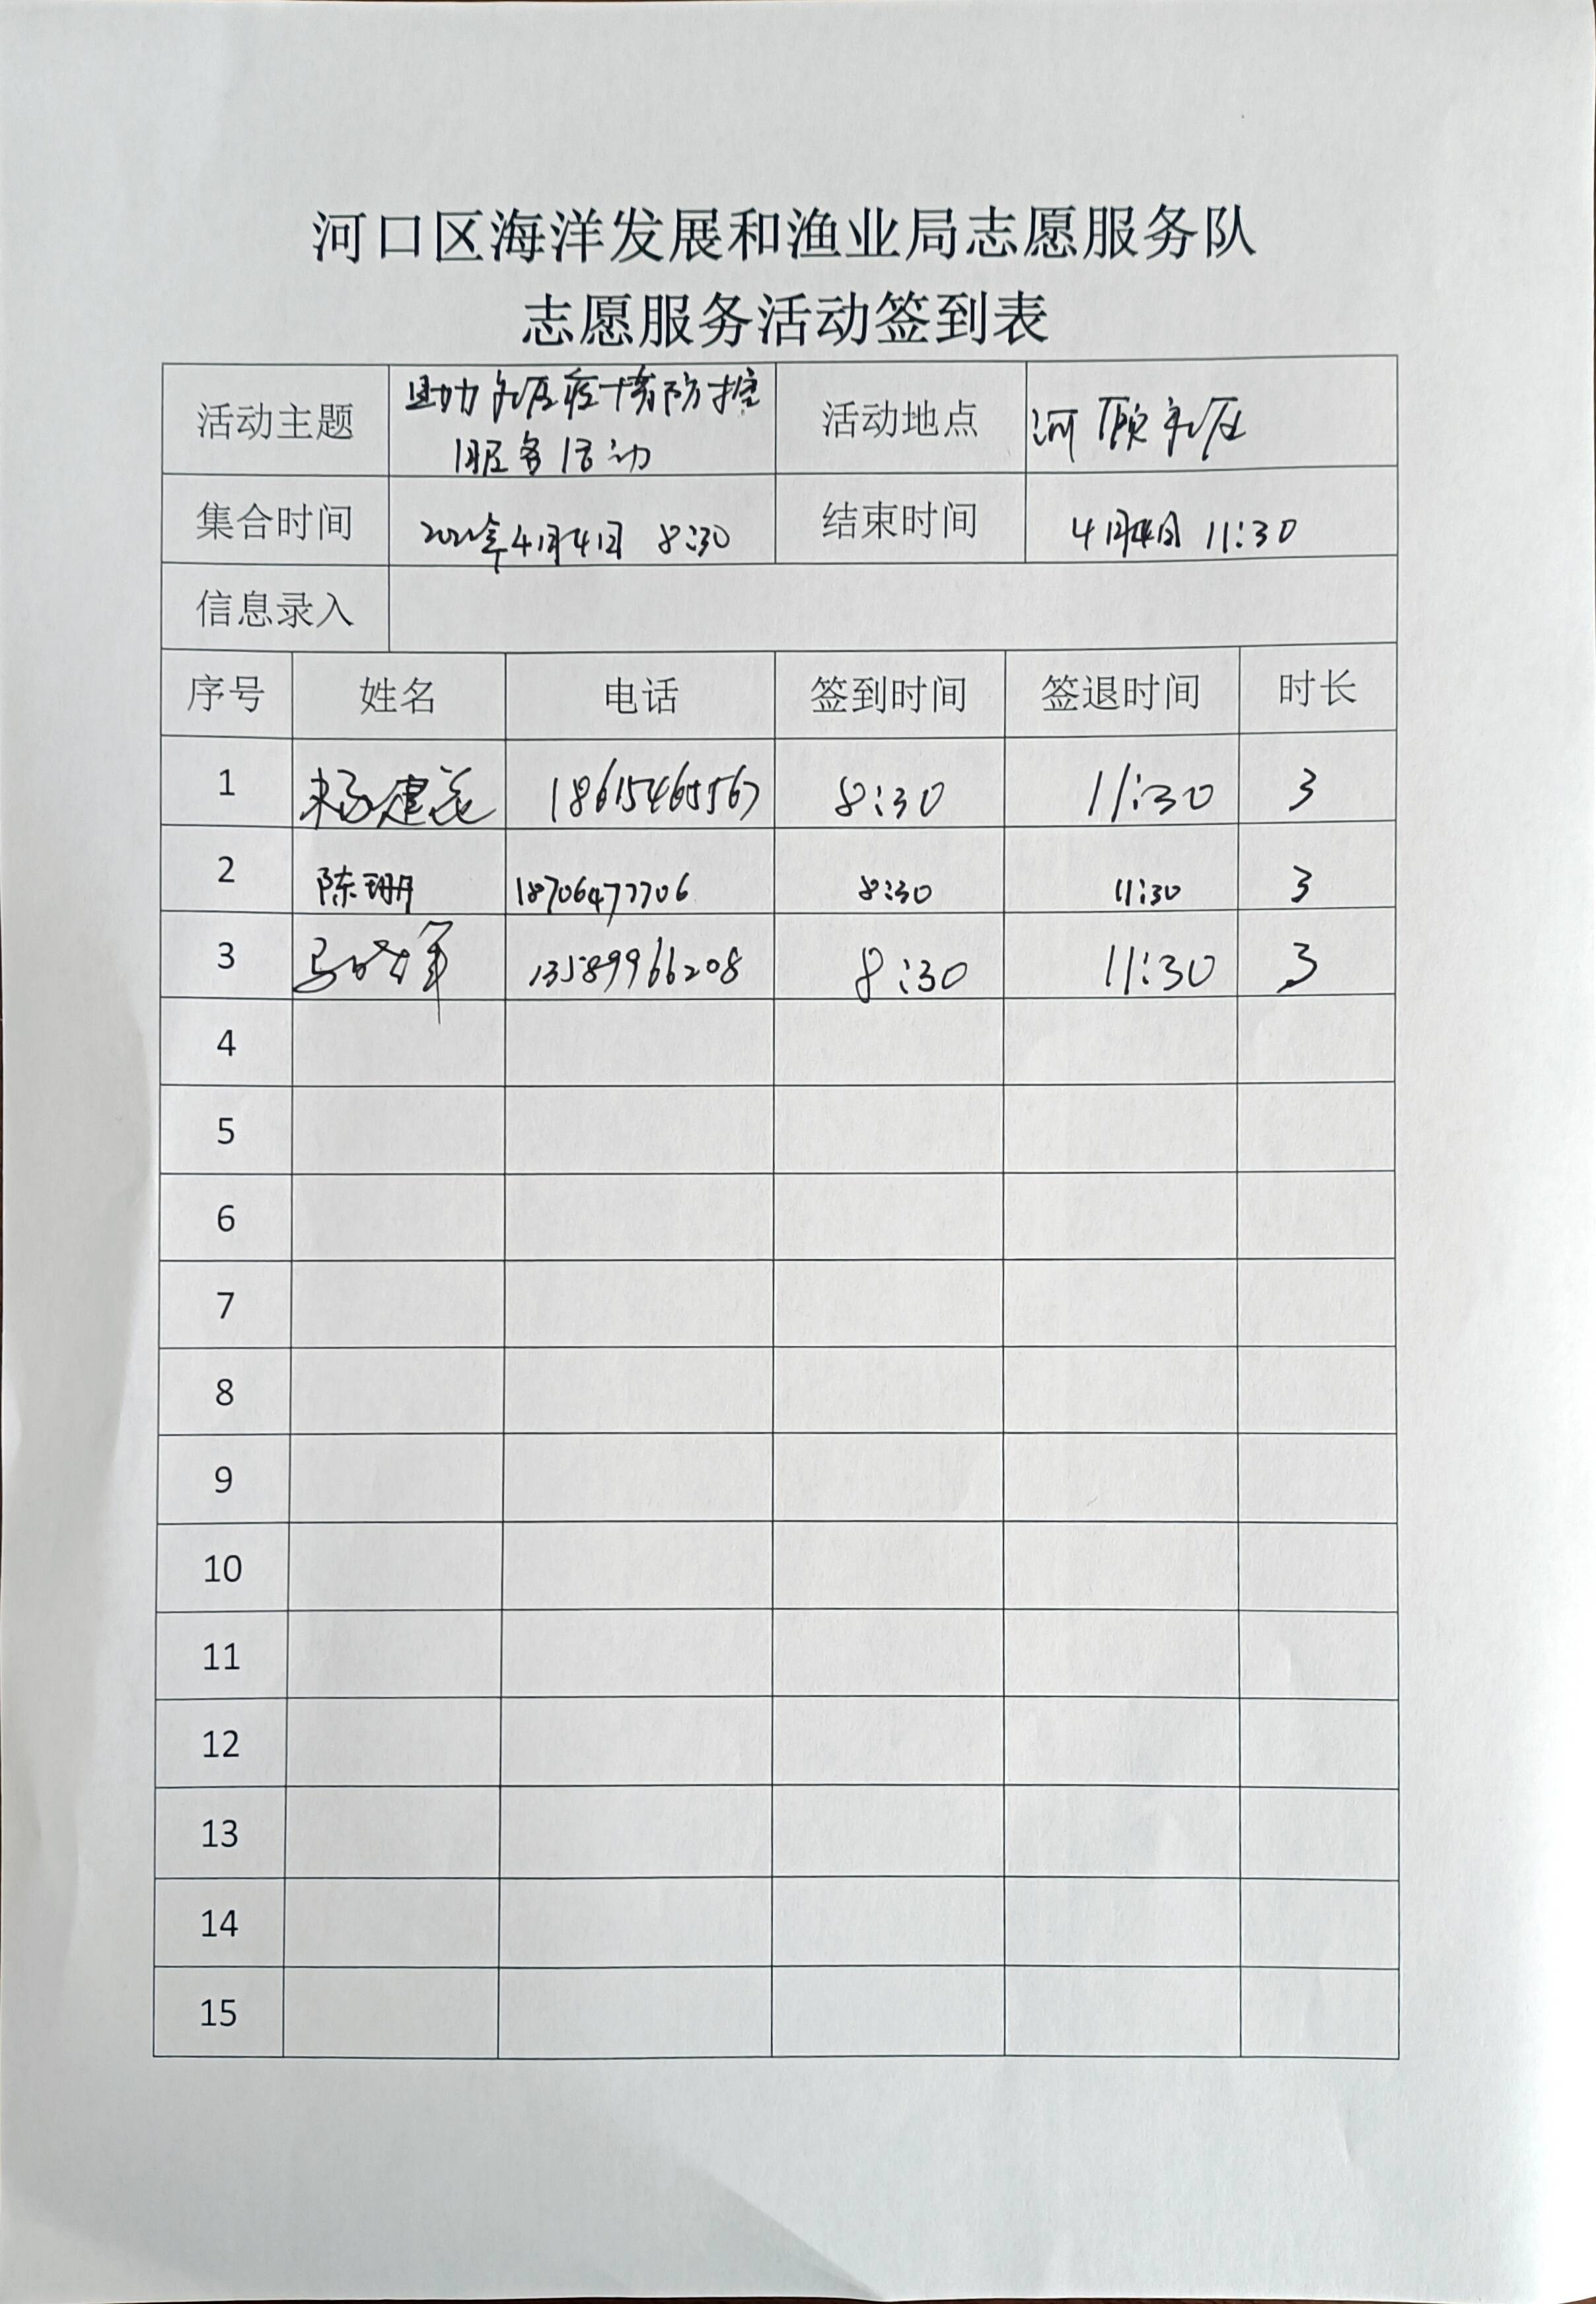 河口区海洋发展和渔业局志愿服务队
志愿服务活动签到表
活动主题 助力社区疫情防控 活动地点 河颐社区
服务活动
集合时间 2022年4月4日 8:30 结束时间 4月4日 11:30
信息录入
序号 姓名 电话 签到时间 签退时间 时长
1 杨建 18615465567 8:30 11:30 3
2 陈珊 18706477706 8:30 11:30 3
3 马军 13589966208 8:30 11:30 3
4
5
6
7
8
9
10
11
12
13
14
15